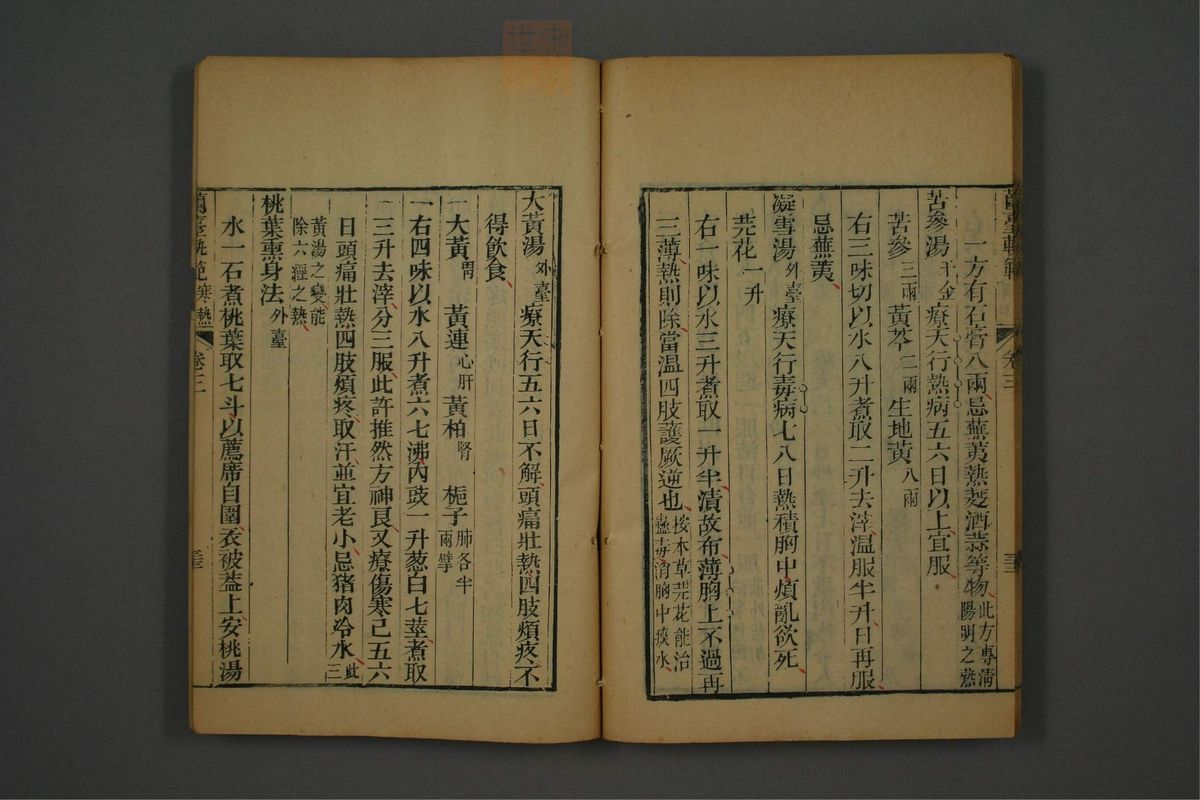 蘭臺軌範 卷三 三
一方有石膏八兩忌蕪荑熱麫酒蒜等物此方專清陽明之熱
苦參湯千金療天行熱病五六日以上宜服
苦參三兩 黃芩二兩 生地黃八兩
右三味切以水八升煮取二升去滓溫服半升日再服
忌蕪荑
凝雪湯外臺療天行毒病七八日熱積胸中煩亂欲死
芫花一升
右一味以水三升煮取一升半漬故布薄胸上不過再
三薄熱則除當溫四肢護厥逆也按本草芫花能治蠱毒消胸中痰水
大黃湯外臺療天行五六日不解頭痛壯熱四肢煩疼不
得飲食
大黃胃 黃連心肝 黃柏腎 梔子肺各半兩擘
右四味以水八升煮六七沸內豉一升葱白七莖煮取
三升去滓分三服此許推然方神良又療傷寒已五六
日頭痛壯熱四肢煩疼取汗並宜老小忌猪肉冷水此三
黃湯之變能除六經之熱
桃葉熏身法外臺
水一石煮桃葉取七斗以薦席自圍衣被蓋上安桃湯
蘭臺軌範 寒熱 卷三 三